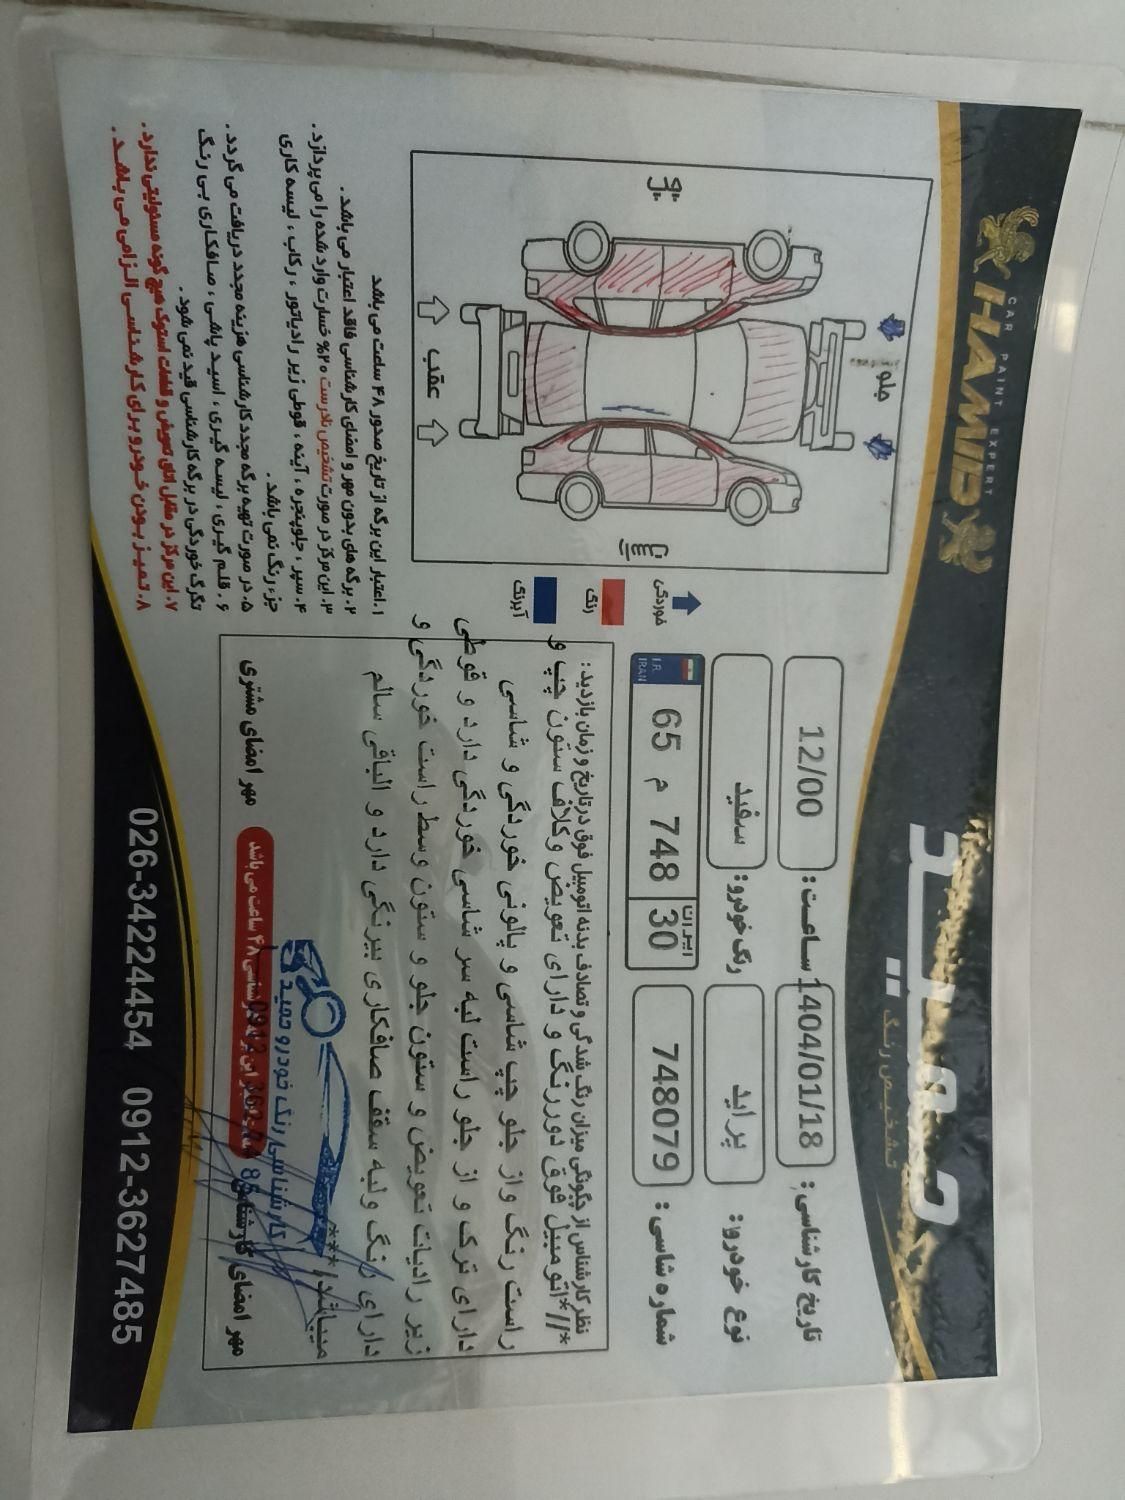 KHAMID
CAR PAINT EXPERT
حمید
تشخیص رنگ
تاریخ کارشناسی: 1404/01/18 ساعت: 12/00
نوع خودرو: پراید رنگ خودرو: سفید
شماره شاسی: 748079
ایران 30
748 م 65
I.R. IRAN
خوردگی
رنگ
آبرنگ
جلو
عقب
نظر کارشناس از چگونگی میزان رنگ شدگی و تصادف بدنه اتومبیل فوق در تاریخ و زمان بازدید:
*//*اتومبیل فوق دوررنگ و دارای تعویض وکلاف ستون چپ و
راست رنگ و از جلو چپ شاسی و پالونی خوردگی و شاسی
دارای ترک و از جلو راست لبه سر شاسی خوردگی دارد و قوطی
زیر رادیات تعویض و ستون جلو و ستون وسط راست خوردگی و
دارای رنگ ولبه سقف صافکاری بیرنگی دارد و الباقی سالم
میباشد/***
مهر امضای کارشناس
مهر امضای مشتری
کارشناسی رنگ خودرو حمید
۱. اعتبار این برگه از تاریخ صدور ۴۸ ساعت می باشد
۲. برگه های بدون مهر و امضای کارشناسی فاقد اعتبار می باشد.
۳. این مرکز در صورت تشخیص نادرست ۲۰% خسارت وارد شده را می پردازد.
۴. سپر، جلوپنجره، آینه، قوطی زیر رادیاتور، رکاب، لیسه کاری
جزء رنگ نمی باشد.
۵. در صورت تهیه برگه مجدد کارشناسی هزینه مجدد دریافت می گردد.
۶. قلم گیری، لیسه گیری، اسید پاشی، صافکاری بی رنگ
تگرگ خوردگی در برگه کارشناسی قید نمی شود.
۷. این مرکز در مقابل اتاق تعویض و قطعات استوک هیچ گونه مسئولیتی ندارد.
۸. تمیز بودن خودرو برای کارشناسی الزامی می باشد.
026-34224454 0912-3627485